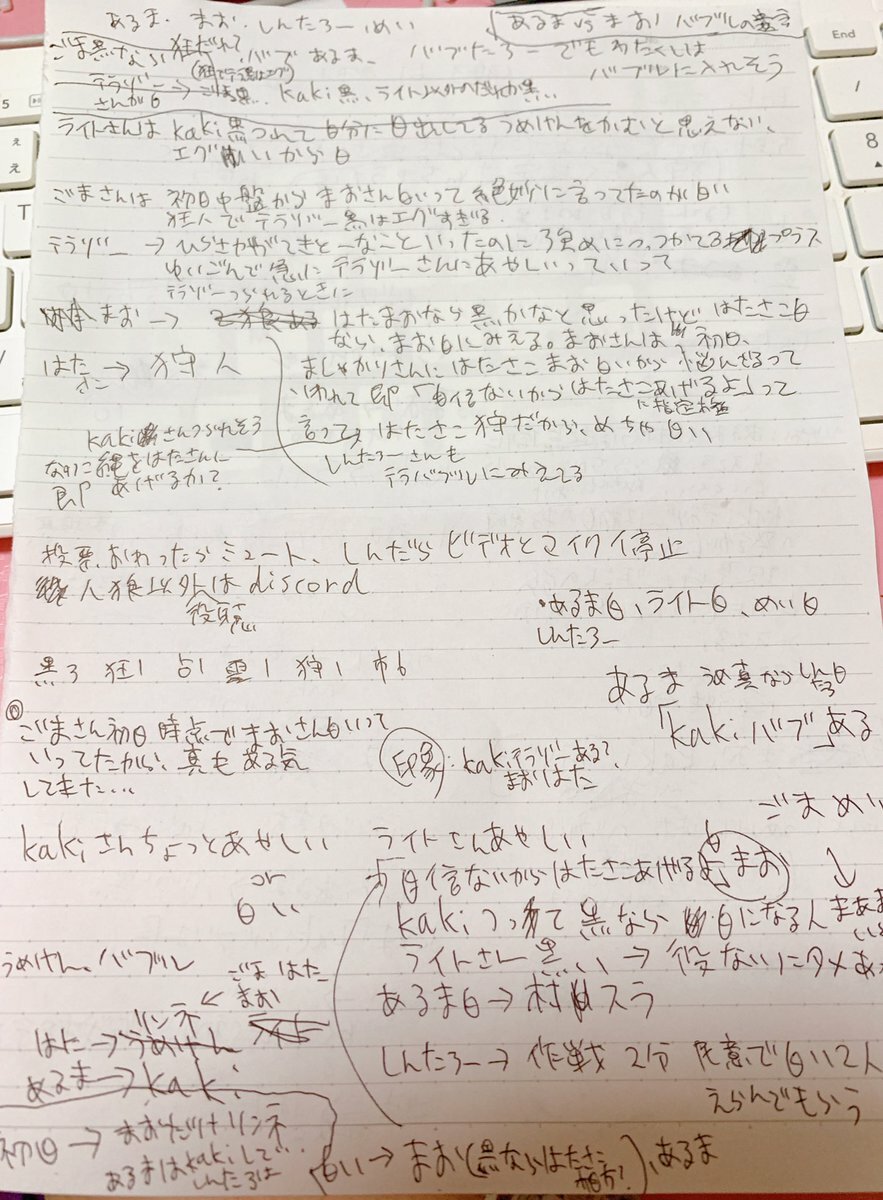 あるま、まお、しんたろー めい
あるま vs まお! バブルの
ごま黒なら狂だれ?
バブ あるま、
バブたろー でもわたくしは
バブルに入れそう
テラゾー
さんが白
kaki黒、ライト以外のだれか黒…
ライトさんは kaki黒つれて自分に白出ししてるうめけんをかむと思えない、
エグいから白
ごまさんは 初日中盤からまおさん白いって絶妙に言ってたのが白い
狂人でテラゾー黒はエグすぎる。
テラゾー → ひらさわがてきとーなこといったのに強めにつっつかてる プラス
ゆいごんで急にテラゾーさんにあやしいっていって
テラゾーつられるときに
まお → はたまおなら黒かなと思ったけど はたさこ白
なら、まお白にみえる。まおさんは 初日、
ましゃかりさんに はたさこ まお 白いから 悩んでるって
いわれて即「自信ないからはたさこあげるよ」って
に指定
言ってて はたさこ狩だから、めちゃ白い
はたさこ → 狩人
kakiさんつられそう
なのに縄をはたさんに
即 あげるか?
しんたろーさんも
テラバブルにみえてる
投票、おわったらミュート、しんだら ビデオとマイク停止
人狼以外は discord
役職
・あるま白、ライト白、めい白
しんたろー
黒3 狂1 占1 霊1 狩1 市6
あるま うめ真なら しんたろ白
「kakiバブ」ある
ごまさん初日時点でまおさん白いって
いってたから、真もある気
してきた…
印象: kakiテラゾーある?
まおはた
ごま めい
kakiさんちょっとあやしい
or
白い
ライトさんあやしい
「自信ないからはたさこあげるよ」まお
kakiつって黒なら 白になる人
ライトさん黒い → 役ない
あるま白 → 村スラ
うめけん、バブル
ごま はた
まお
リンネ
はた → うめけん
あるま → kaki
しんたろー → 作戦 2分 民意で白い2人
えらんでもらう
初日 → まおだけリンネ
あるまはkakiして
しんたろは
白い → まお(黒ならはたさこ
相方?)、あるま